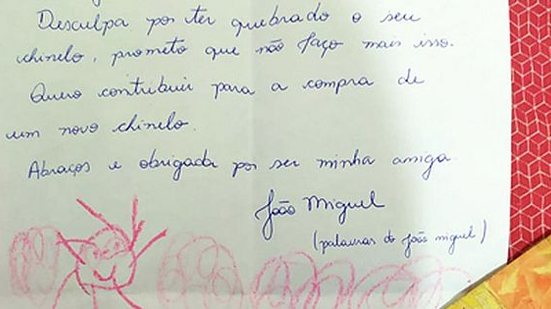 Desculpa por ter quebrado o seu
chinelo, prometo que não faço mais isso.
Quero contribuir para a compra de
um novo chinelo.
Abraços e obrigada por ser minha amiga
João Miguel
(palavras do João miguel)